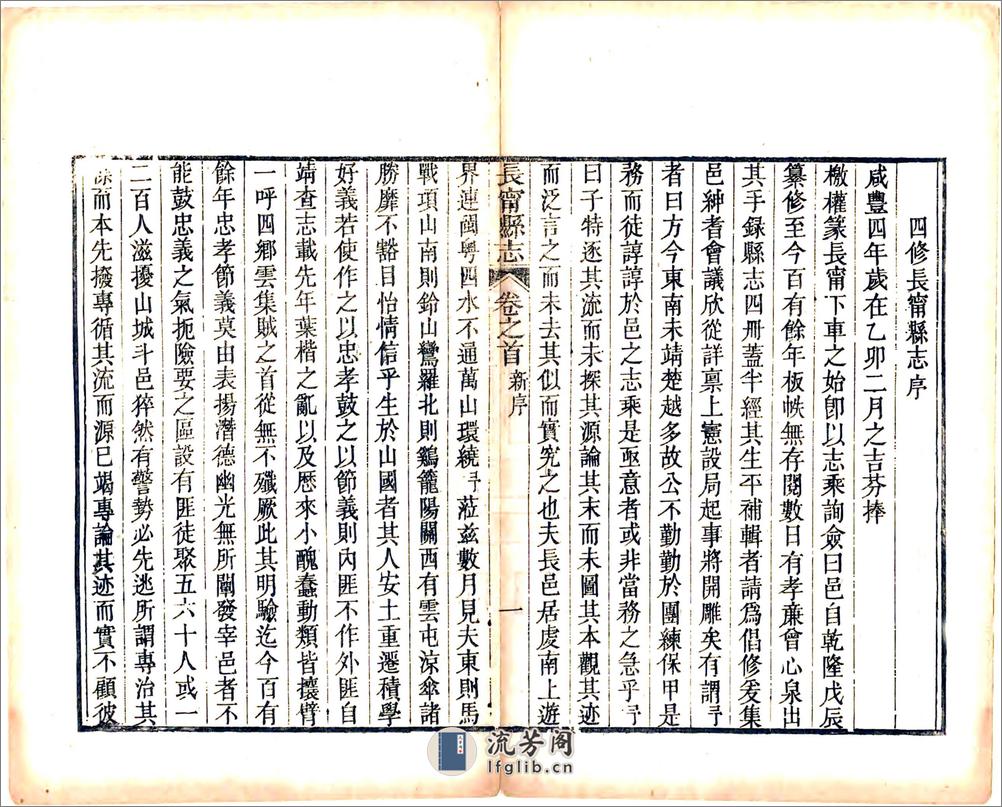 四修長甯縣志序
咸豐四年歲在乙卯二月之吉芬捧
檄權篆長甯下車之始卽以志乘詢僉曰邑自乾隆戊辰
纂修至今百有餘年板帙無存閱數日有孝廉曾心泉出
其手錄縣志四冊蓋半經其生平補輯者請爲倡修爰集
邑紳者會議欣從詳稟上憲設局起事將開雕矣有謂予
者曰方今東南未靖楚越多故公不勤勤於團練保甲是
務而徒諄諄於邑之志乘是亟意者或非當務之急乎予
曰子特逐其流而未探其源論其末而未圖其本觀其迹
而泛言之而未去其似而實究之也夫長邑居虔南上游
長甯縣志
卷之首
新序
一
界連閩粵四水不通萬山環繞予蒞茲數月見夫東則馬
戰項山南則鈴山鸞羅北則鷄籠陽關西有雲屯涼傘諸
勝靡不豁目怡情信乎生於山國者其人安土重遷積學
好義若使作之以忠孝鼓之以節義則內匪不作外匪自
靖查志載先年葉楷之亂以及歷來小醜蠢動類皆攘臂
一呼四鄉雲集賊之首從無不殲厥此其明驗迄今百有
餘年忠孝節義莫由表揚潛德幽光無所闡發宰邑者不
能鼓忠義之氣扼險要之區設有匪徒聚五六十人或一
二百人滋擾山城斗邑猝然有警勢必先逃所謂專治其
餘而本先撥專循其流而源已竭專論其迹而實不顧彼
流芳阁
lfglib.cn